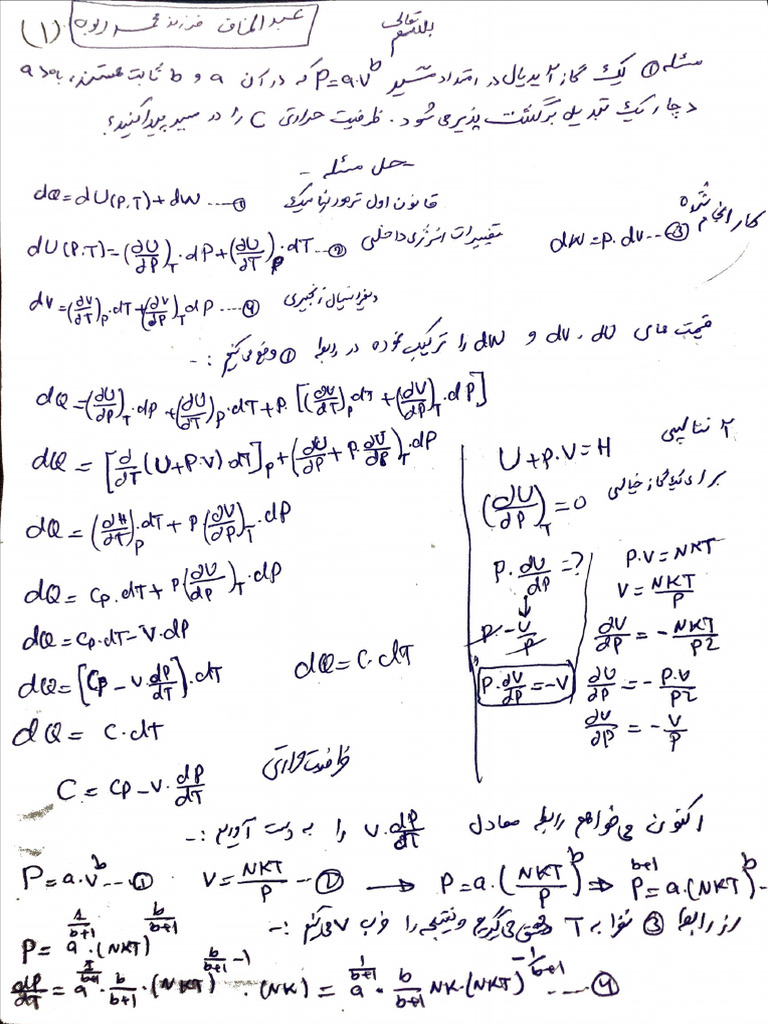 بسم تعالی
عبدالمناف فرزند محمد ربوبه (۱)
مسئله ① یک گاز آیدیال در امتداد مسیر P=a.V^b که در آن a و b ثابت هستند،
دچار یک تبدیل برگشت پذیر می شود. ظرفیت حرارتی C را در مسیر پیدا کنید؟
حل مسئله -
dQ=dU(P.T)+dW ---① قانون اول ترمودینامیک
dU(P.T)=(∂U/∂P)_T.dP+(∂U/∂T)_P.dT--② تغییرات انرژی داخلی
dW=P.dV--③ کار انجام شده
dV=(∂V/∂T)_P.dT+(∂V/∂P)_T dP ---④ دیفرانسیال زنجیری
قیمت های dV، dU و dW را ترکیب نموده در رابطه ① وضع می کنیم :-
dQ=(∂U/∂P)_T.dP+(∂U/∂T)_P.dT+P.[(∂V/∂T)_P dT+(∂V/∂P)_T.dP]
dQ=[∂/∂T(U+P.V)dT]_P+(∂U/∂P+P.∂V/∂P)_T.dP
dQ=(∂H/∂T)_P.dT+P(∂V/∂P)_T.dP
dQ=Cp.dT+P(∂V/∂P)_T.dP
dQ=Cp.dT-V.dP
dQ=[Cp-V.dP/dT].dT
dQ=C.dT
dQ=C.dT
C=Cp-V.dP/dT ظرفیت حرارتی
U+P.V=H آنتالپی
(∂U/∂P)_T=0 برای یک گاز خیالی
P.∂V/∂P=?
P.-V/P
P.∂V/∂P=-V
P.V=NKT
V=NKT/P
∂V/∂P=-NKT/P2
∂V/∂P=-P.V/P2
∂V/∂P=-V/P
اکنون می خواهیم رابطه معادل V.dP/dT را به دست آوریم :-
P=a.V^b---① V=NKT/P--② → P=a.(NKT/P)^b ⇒ P^b+1=a.(NKT)^b-
از رابطه ③ نظر به T مشتق می گیریم و نتیجه را ضرب V می کنیم :-
P=a^1/b+1.(NKT)^b/b+1
dP/dT=a^1/b+1.b/b+1.(NKT)^b/b+1-1.(NK)=a^1/b+1.b/b+1 NK.(NKT)^-1/b+1 ---④